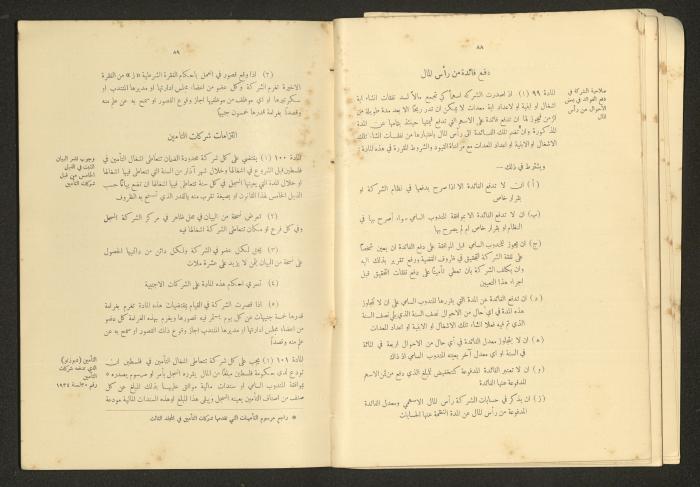 ٨٨
دفع فائدة من رأس المال
صلاحية الشركة في
دفع الفوائد في بعض
الأحوال من رأس
المال
المادة ٩٩ (١) اذا اصدرت الشركة اسهماً كي تجمع مالاً لسد نفقات انشاء اية
اشغال او ابنية او لاعداد اية معدات لا يمكن ان تدر ربحاً الا بعد مدة طويلة من
الزمن فيجوز لها ان تدفع فائدة على الاسهم التي تدفع قيمتها حينئذ بتمامها عن المدة
المذكورة وان تضم تلك الفائدة الى رأس المال باعتبارها من نفقات انشاء تلك
الاشغال او الابنية او اعداد المعدات مع مراعاة القيود والشروط المقررة في هذه المادة
ويشترط في ذلك —
(أ) ان لا تدفع الفائدة الا اذا صرح بدفعها في نظام الشركة او
بقرار خاص
(ب) ان لا تدفع الفائدة الا بموافقة المندوب السامي سواء أصرح بها في
النظام او بقرار خاص ام لم يصرح بها
(ج) ان يجوز للمندوب السامي قبل الموافقة على دفع الفائدة ان يعين شخصاً
على نفقة الشركة للتحقيق في ظروف القضية ورفع تقرير بذلك اليه
وان يكلف الشركة بان تعطي تأميناً على دفع نفقات التحقيق قبل
اجراء هذا التعيين
(د) ان تدفع الفائدة عن المدة التي يقررها المندوب السامي على ان لا تتجاوز
هذه المدة في اي حال من الاحوال نصف السنة الذي يلي نصف السنة
الذي تم فيه فعلا انشاء تلك الاشغال او الابنية او اعداد المعدات
(ه) ان لا يتجاوز معدل الفائدة في أي حال من الاحوال اربعة في المائة
في السنة او اي معدل آخر يعينه المندوب السامي اذ ذاك
(و) ان لا تعتبر الفائدة المدفوعة كتخفيض للمبلغ الذي دفع من ثمن الاسهم
المدفوعة عنها الفائدة
(ز) ان يذكر في حسابات الشركة رأس المال الاسهمي ومعدل الفائدة
المدفوعة من رأس المال عن المدة المنظمة عنها الحسابات
٨٩
(٢) اذا وقع قصور في العمل باحكام الفقرة الشرطية «ز» من الفقرة
الاخيرة تغرم الشركة وكل عضو من اعضاء مجلس ادارتها او مديرها المنتدب او
سكرتيرها او اي موظف من موظفيها اجاز وقوع القصور او سمح به عن علم منه
وقصداً بغرامة قدرها خمسون جنيهاً
التزامات شركات التأمين
وجوب نشر البيان
المثبت في الذيل
الخامس من قبل
شركات التأمين
المادة ١٠٠ (١) يقتضي على كل شركة محدودة الضمان تتعاطى اشغال التأمين في
فلسطين قبل الشروع في اشغالها وخلال شهر آذار من السنة التي تتعاطى فيها اشغالها
او خلال المدة التي يعينها المسجل في كل سنة تتعاطى فيها اشغالها ان تضع بياناً حسب
الذيل الخامس لهذا القانون او بصيغة تقرب منه بالقدر الذي تسمح به الظروف
(٢) تعرض نسخة من البيان في محل ظاهر في مركز الشركة المسجل
وفي كل فرع او مكان تتعاطى الشركة اشغالها فيه
(٣) يحق لكل عضو في الشركة ولكل دائن من دائنيها الحصول
على نسخة من البيان بثمن لا يزيد على عشرة ملات
(٤) تسري احكام هذه المادة على الشركات الاجنبية
(٥) اذا قصرت الشركة في القيام بمقتضيات هذه المادة تغرم بغرامة
قدرها خمسة جنيهات عن كل يوم يستمر فيه قصورها ويغرم بهذه الغرامة كل عضو
من اعضاء مجلس ادارتها او مديرها المنتدب اجاز وقوع ذلك القصور او سمح به عن
علم منه وقصداً
التأمين (ديبوزيتو)
الذي تدفعه شركات
التأمين
رقم ٣٠ لسنة ١٩٣٤
المادة ١٠١ (١) يجب على كل شركة تتعاطى اشغال التأمين في فلسطين ان
تودع لدى حكومة فلسطين مبلغاً من المال يقرره المسجل بأمر او مرسوم يصدره *
بموافقة المندوب السامي او سندات مالية موافق عليها بذلك المبلغ عن كل
صنف من اصناف التأمين يعينه المسجل ويبقى هذا المبلغ او هذه السندات المالية مودعة
* راجع مرسوم التأمينات التي تقدمها شركات التأمين في المجلد الثالث